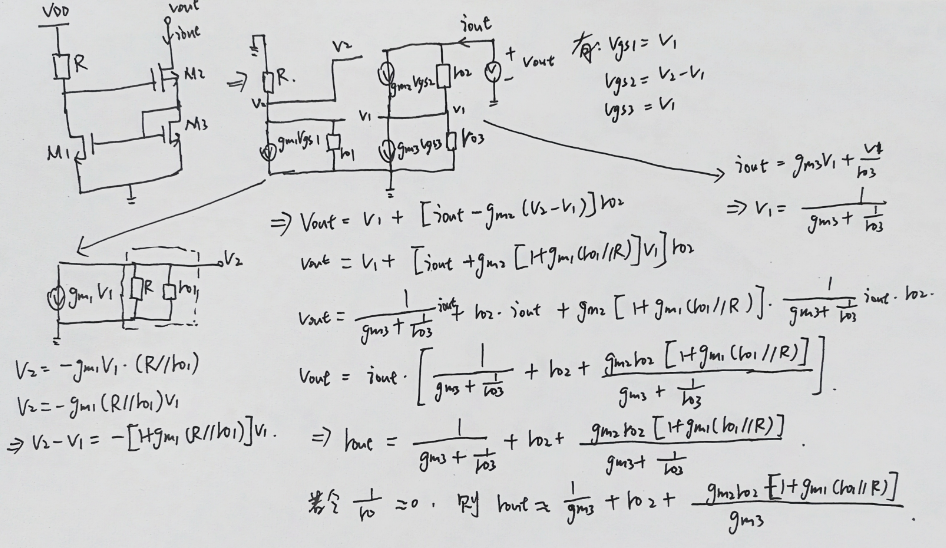 VDD
vout
iout
R
M2
M1
M3
⇒
R.
V2
V2
V1
V1
gm1Vgs1
ro1
gm2Vgs2
ro2
gm3Vgs3
ro3
iout
+
Vout
-
有: Vgs1 = V1
Vgs2 = V2-V1
Vgs3 = V1
iout = gm3V1 + V1/ro3
⇒ V1 = 1/(gm3 + 1/ro3)
⇒ Vout = V1 + [iout - gm2 (V2-V1)] ro2
Vout = V1 + [iout + gm2 [1+gm1(ro1//R)]V1] ro2
Vout = 1/(gm3 + 1/ro3) iout + ro2 · iout + gm2 [1+gm1(ro1//R)] · 1/(gm3 + 1/ro3) iout · ro2.
Vout = iout · [1/(gm3 + 1/ro3) + ro2 + gm2ro2 [1+gm1(ro1//R)]/(gm3 + 1/ro3)].
⇒ rout = 1/(gm3 + 1/ro3) + ro2 + gm2ro2 [1+gm1(ro1//R)]/(gm3 + 1/ro3).
若令 1/ro ≈ 0, 则 rout ≈ 1/gm3 + ro2 + gm2ro2 [1+gm1(ro1//R)]/gm3.
gm1V1
R
ro1
V2
V2 = -gm1V1 · (R//ro1)
V2 = -gm1(R//ro1)V1
⇒ V2-V1 = -[1+gm1(R//ro1)]V1.